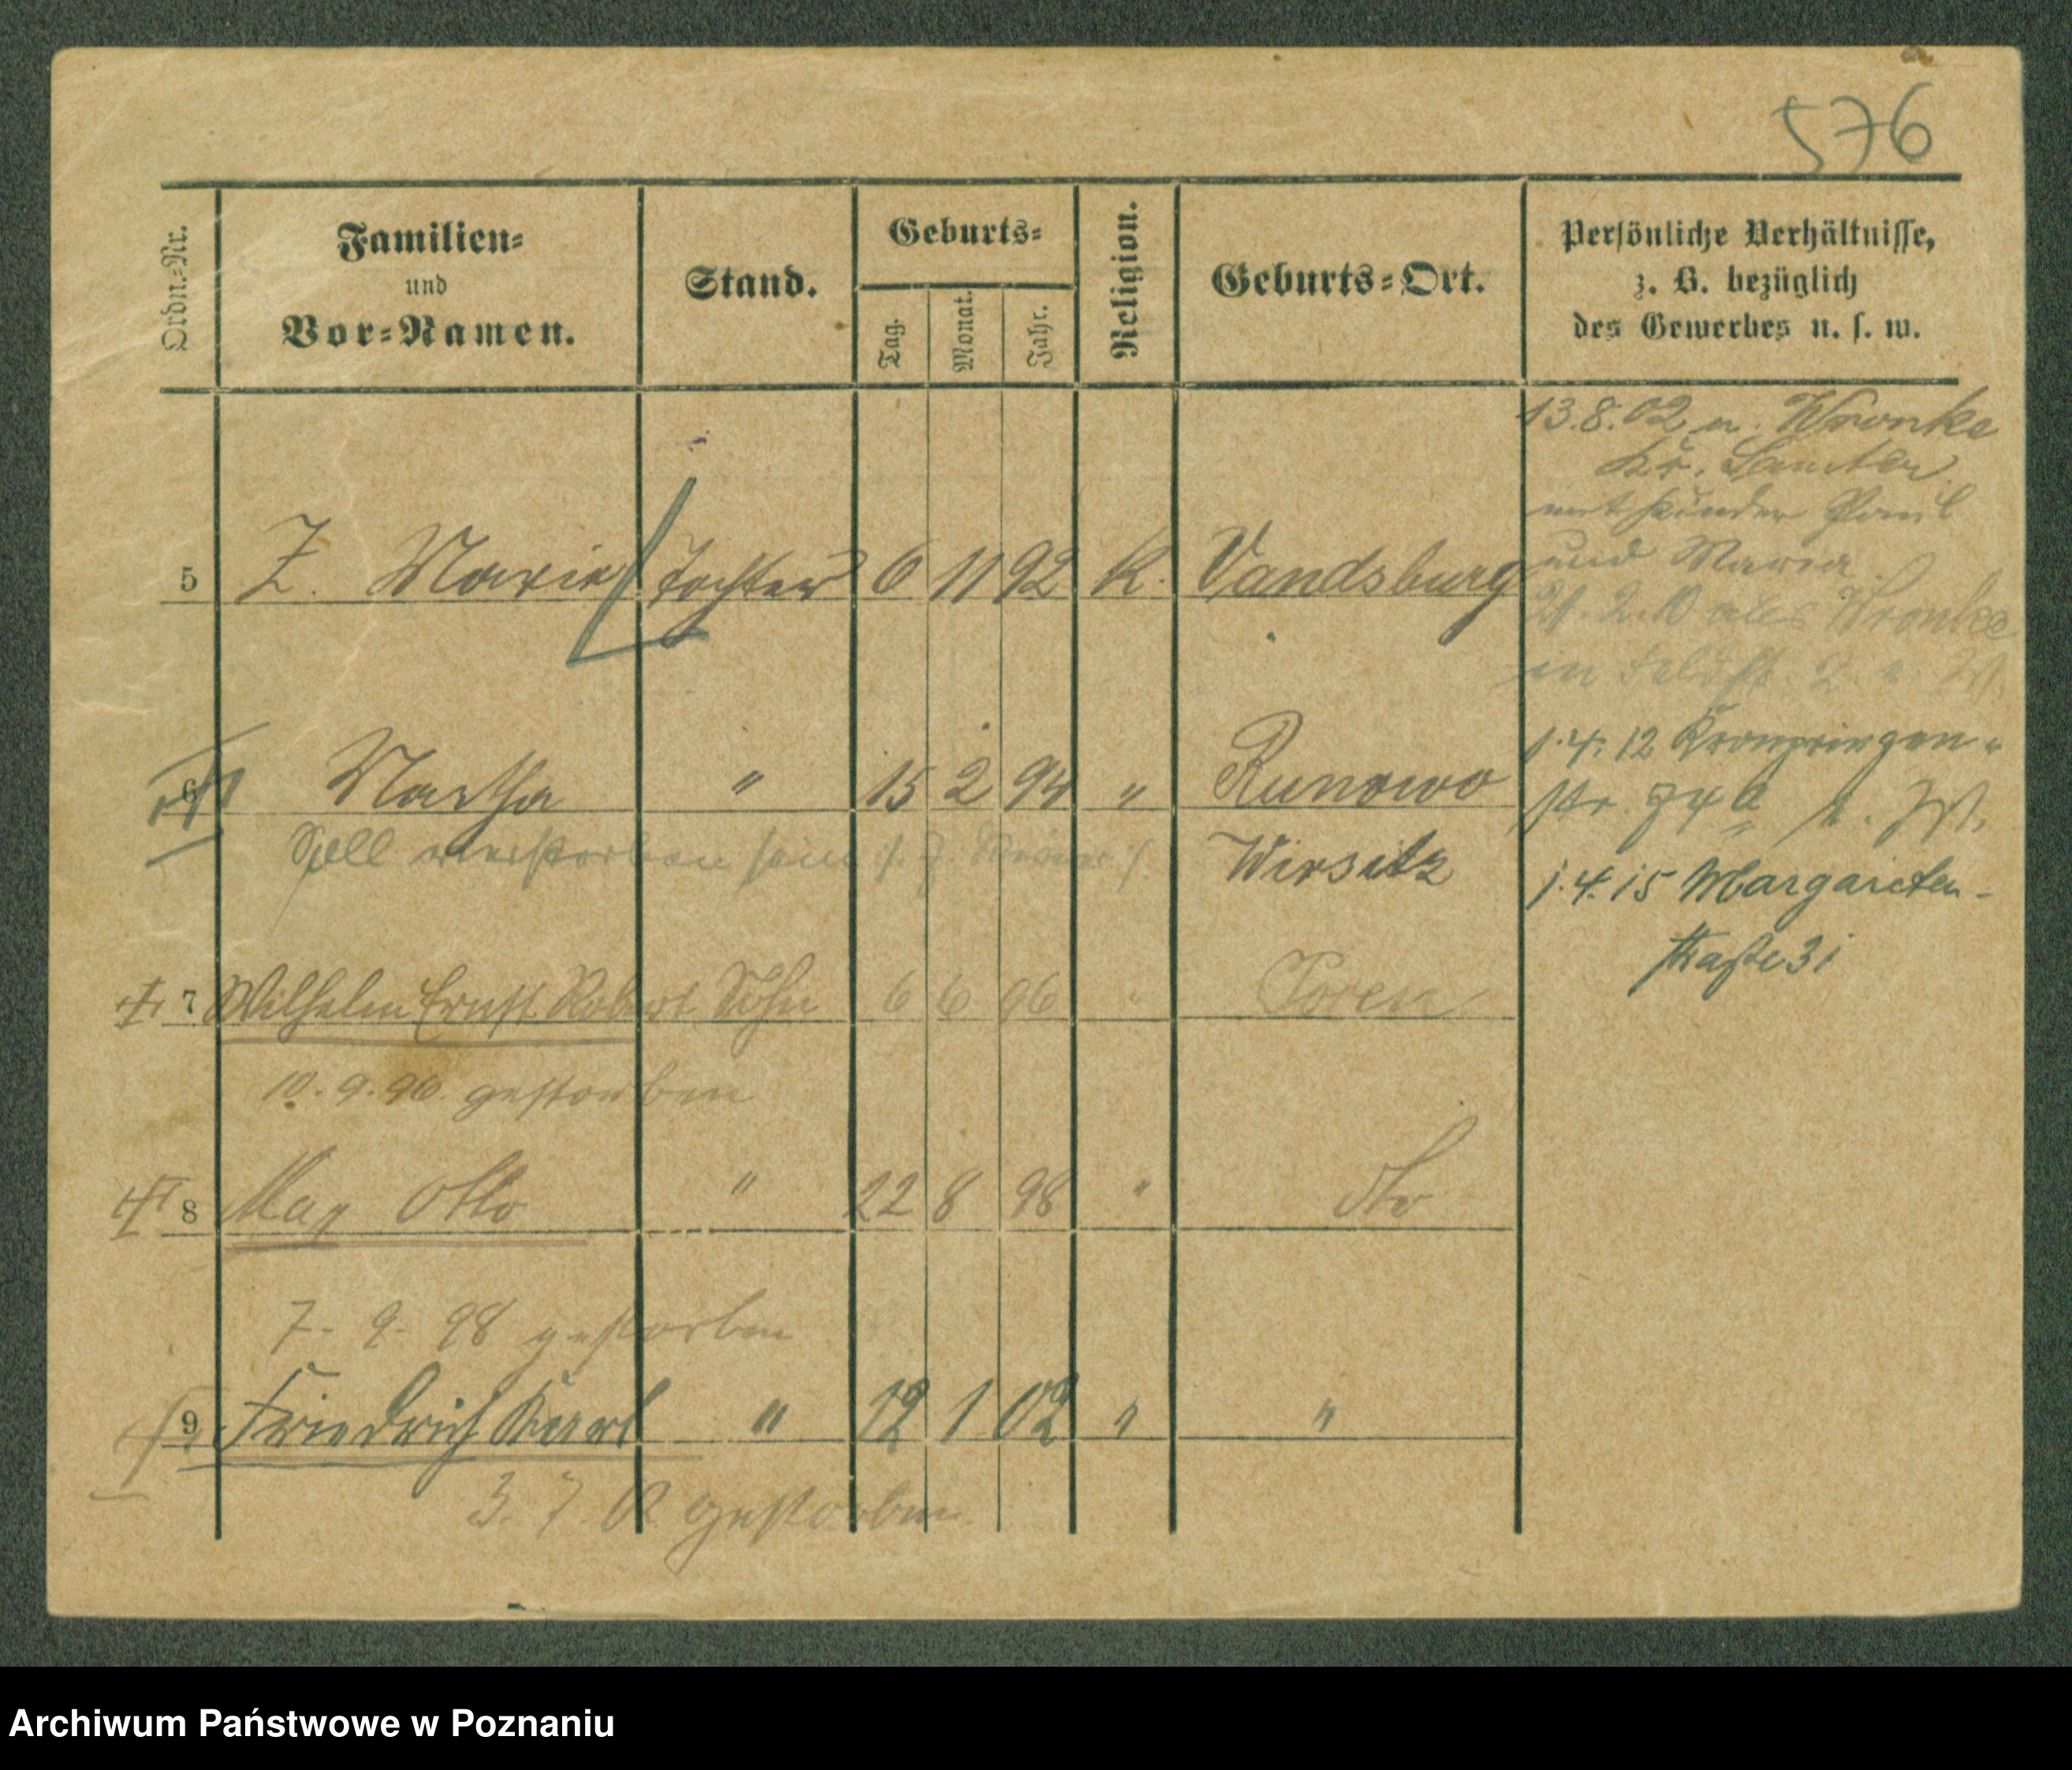 576
Ordn.-Nr. Familien- und Vor-Namen. Stand. Geburts- Tag. Monat. Jahr. Religion. Geburts-Ort. Persönliche Verhältnisse, z. B. bezüglich des Gewerbes u. s. w.
13.8.02 n. Wronke
Kr. Samter
mit Kinder Paul
und Maria
5 Z. Marie Tochter 6 11 92 K. Vandsburg
21.2.10 aus Wronke
in Feldstr. 2
6 Martha " 15 2 94 " Runowo
1.4.12 Kronprinzen-
str.
Soll verstorben sein Wirsitz
1.4.15 Margareten-
straße 31
7 Wilhelm Ernst Robert Sohn 6 6 96 " Posen
10.9.96. gestorben
8 Max Otto " 22 8 98 " dto
7. 9. 98 gestorben
9 Friedrich Karl " 12 1 02 " "
3. 7. 02 gestorben.
Archiwum Państwowe w Poznaniu